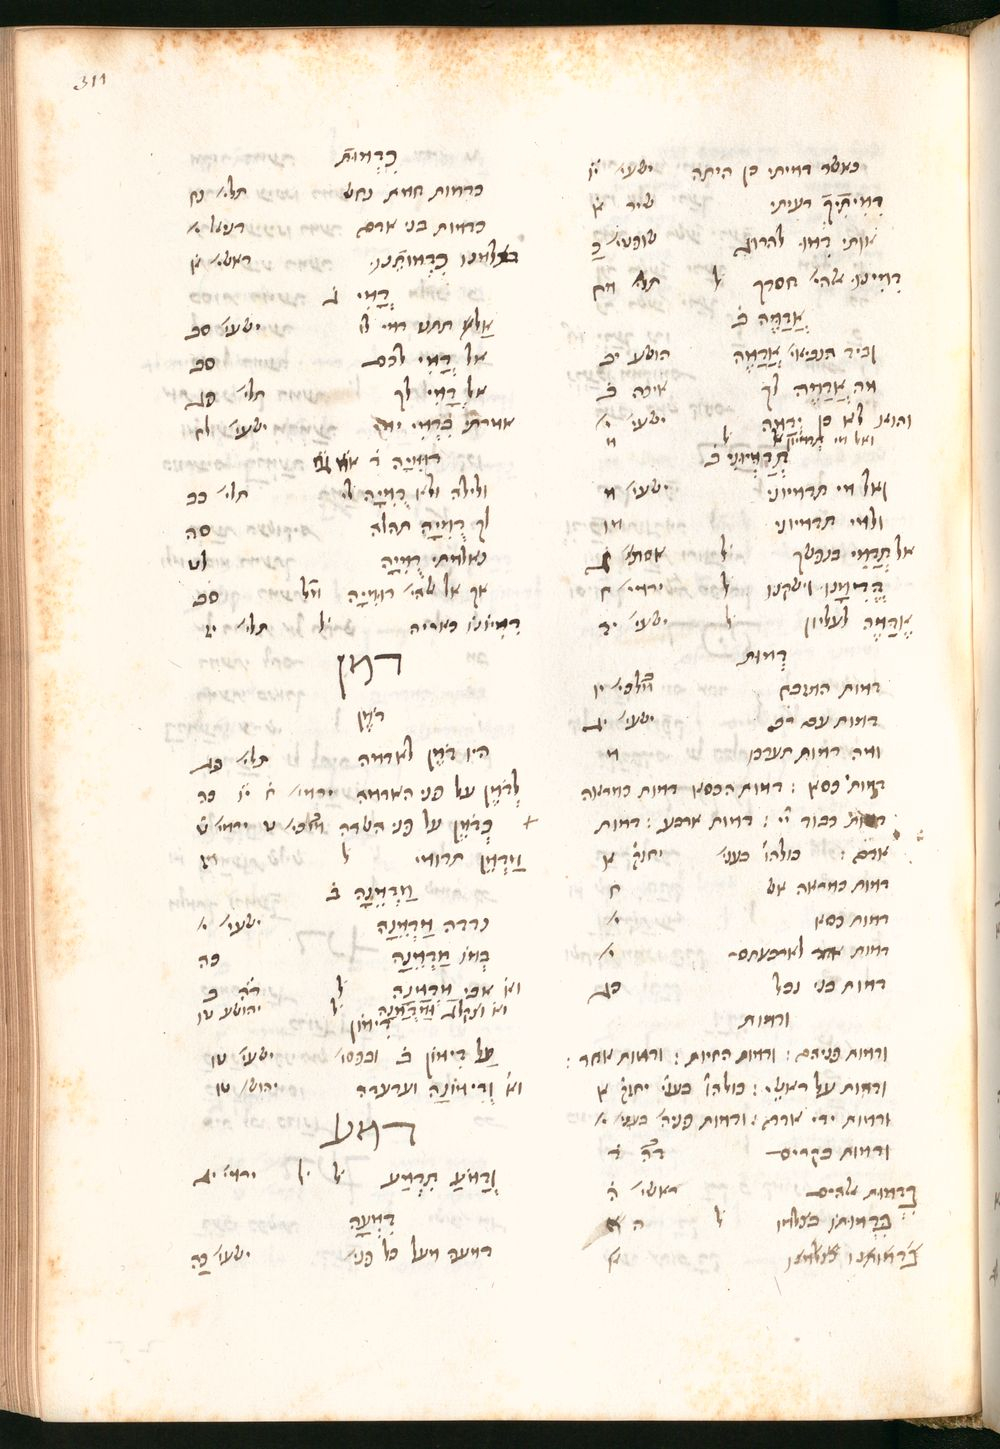 311
כאשר דמיתי כן היתה ישעי׳ יו
דִמִיתִיךָ רעיתי שיר א
אותי דִמו להרוג שופטי׳ כ
דִמִינו אלהי׳ חסדך ל תל׳ מח
אֲדַמֶה ב
וביד הנביאי׳ אֲדַמֶה הושע יב
מה אֲדַמֶה לך איכה ב
והוא לא כן יְדַמֶה ישעי׳ י
ואל מי ל מ
תְדַמְיוּנִי ב
ואל מי תדמיוני ישעי׳ מ
ולמי תדמיוני מו
אל תְדַמִי בנפשך ל אסתר׳ ד
הֲדִמָנו וישקנו ל ירמי׳ ח
אֶדַמֶה לעליון ל ישעי׳ יד
דְמות
דמות המזבח מלכי׳ יו
דמות עם רב ישעי׳ יג
ומה דמות תערכו מ
דמות כסא : דמות הכסא דמות כמראה
דמות כבוד יי׳ : דמות ארבע : דמות
אדם : כולהו׳ בעני׳ יחזק׳ א
דמות כמראה אש ח
דמות כסא י׳
דמות אחד לארבעתם י׳
דמות בני בבל כג
ודמות
ודמות פניהם : ודמות החיות : ודמות אחד :
ודמות על ראשי׳ : כולהו׳ בעני׳ יחזק׳ א
ודמות ידי אדם : ודמות פניה׳ בעני׳ י׳
ודמות בקרים דה׳ ד
בִדְמות אלהים ראשי׳ ה
בִדְמותו כצלמו ל ה
כִדְמותנו בצלמנו א
כִדְמות
כדמות חמת נחש תלי׳ נח
כדמות בני אדם דניאל י׳
בצלמנו כִדְמותֵנו ראשי׳ א
דֳמִי ג
אַל תתנו דמי לו ישעי׳ סב
אל דֳמִי לכם סב
אל דֳמִי לך תלי׳ פג
אמרתי בִדְמִי ימי ישעי׳ לח
דומִיָה ד
ולילה ולא דֻמִיָה לי תלי׳ כב
לך דֻמִיָה תהלה סה
נאלמתי דומִיָה לט
אך אל אלהי׳ דומִיָה סב
דִמיונו כאריה ל תלי׳ יז
דמן
דֹמֶן
היו דֹמֶן לאדמה תלי׳ פג
לְדֹמֶן על פני האדמה ירמי׳ ח יו כה
+ כְדֹמֶן על פני השדה מלכי׳ ט ירמי׳ ט
מַדְמֵן תדומי ל מח
מַדְמֵנָה ב
נדדה מַדְמֵנָה ישעי׳ י׳
בְמו מַדְמֵנָה כה
וא׳ אבי מַדְמַנָה ל דה׳ ב
וא׳ וצקלג וּמַדְמַנָה ל יהושע טו
דימון
על דימון ב ישעי׳ טו
וא׳ וְדימונָה ועדעדה יהוש׳ טו
דמע
וְדָמֹעַ תִדְמַע ל ל ירמי׳ יג
דִמְעָה
דמעה מעל כל פני׳ ישעי׳ כה